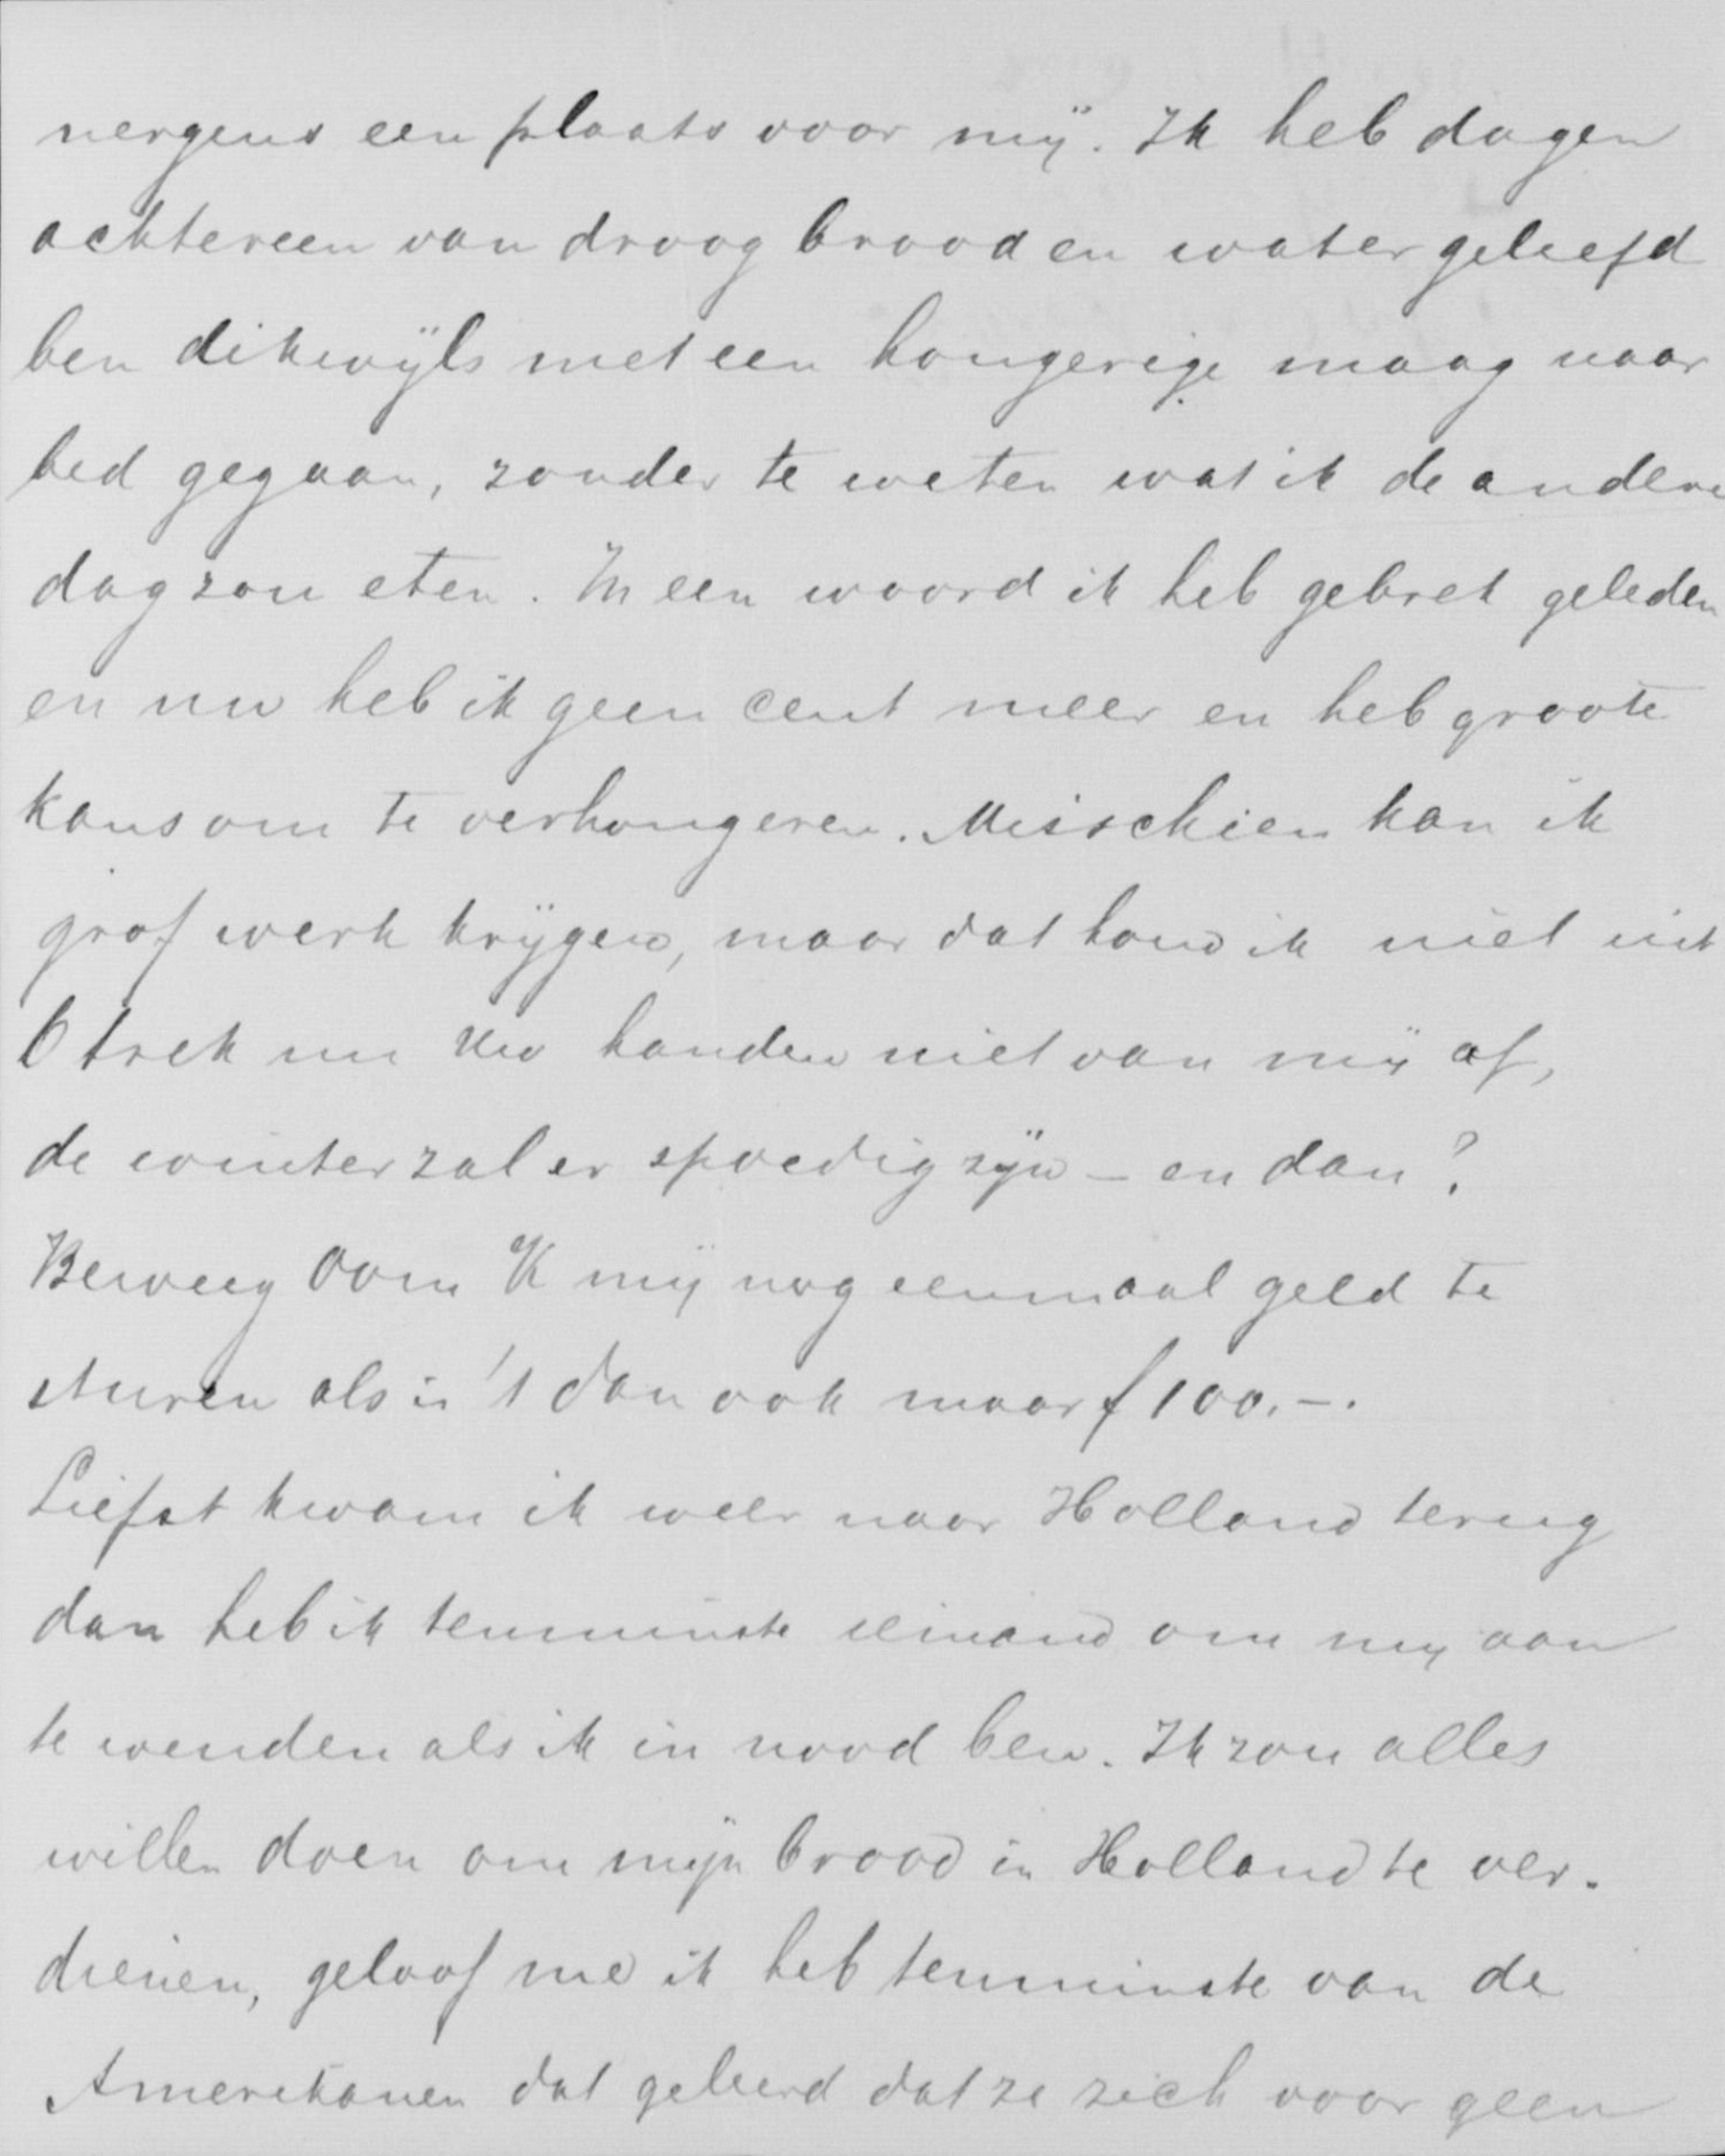 nergens een plaats voor mij. Ik heb dagen
achtereen van droog brood en water geleefd
ben dikwijls met een hongerige maag naar
bed gegaan, zonder te weten wat ik de andere
dag zou eten. In een woord ik heb gebrek geleden
en nu heb ik geen cent meer en heb groote
kans om te verhongeren. Misschien kan ik
grof werk krijgen, maar dat houd ik niet uit
O trek nu Uw handen niet van mij af,
de winter zal er spoedig zijn – en dan?
Beweeg Oom K mij nog eenmaal geld te
sturen als is 't dan ook maar f 100.–.
Liefst kwam ik weer naar Holland terug
dan heb ik tenminste iemand om mij aan
te wenden als ik in nood ben. Ik zou alles
willen doen om mijn brood in Holland te ver-
dienen, geloof me ik heb tenminste van de
Amerikanen dat geleerd dat ze zich voor geen